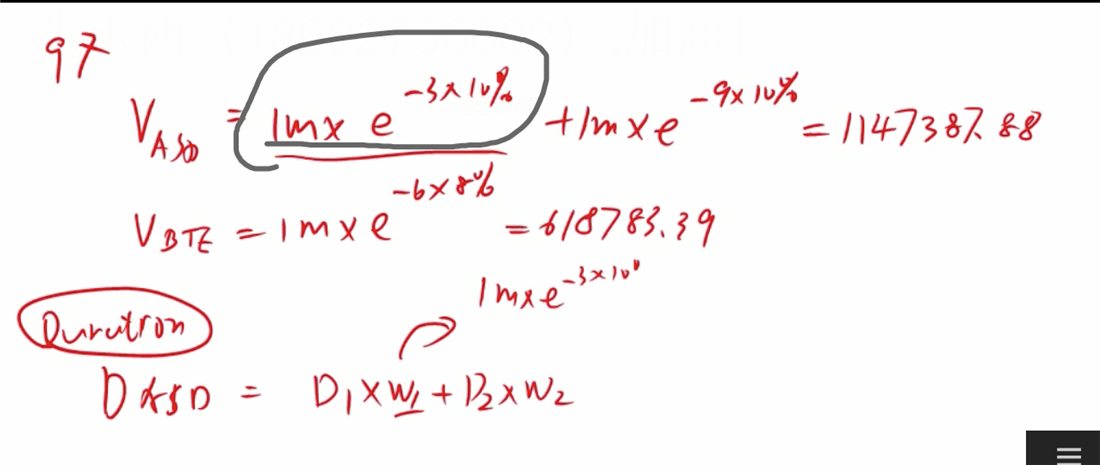 97
V_ASD = 1m x e^-3x10% + 1m x e^-9x10% = 1147387.88
V_BTE = 1m x e^-6x8% = 618783.39
1m x e^-3x10%
Duration
D_ASD = D1 x W1 + D2 x W2